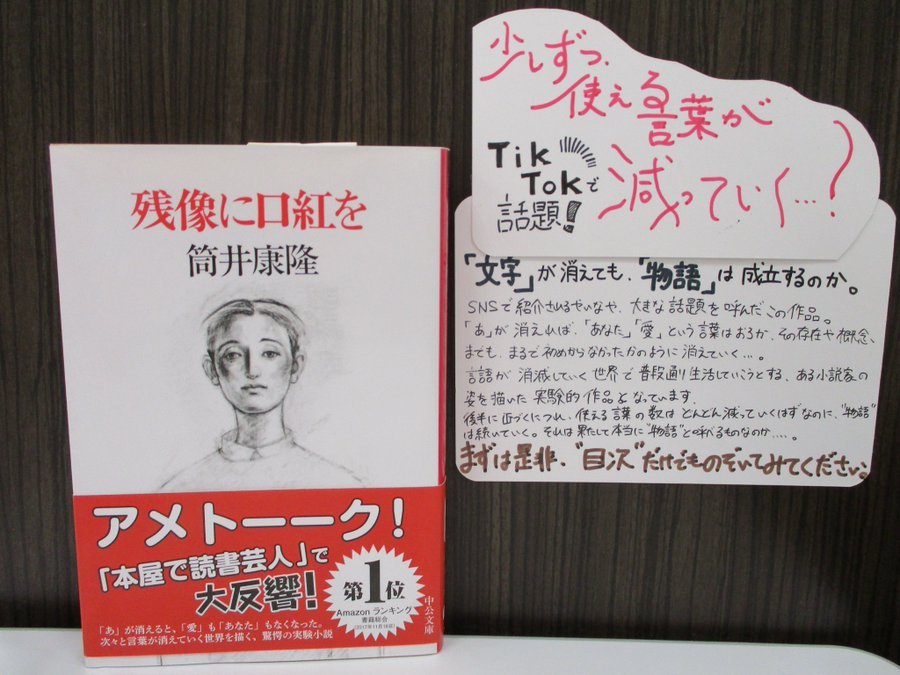 残像に口紅を
筒井康隆
アメトーーク!
「本屋で読書芸人」で
大反響!
第1位
Amazon ランキング
書籍総合
(2017年11月18日)
「あ」が消えると、「愛」も「あなた」もなくなった。
次々と言葉が消えていく世界を描く、驚愕の実験小説
中公文庫
少しずつ、
使える言葉が
減っていく…?
TikTokで
話題!
「文字」が消えても、「物語」は成立するのか。
SNSで紹介されるやいなや、大きな話題を呼んだこの作品。
「あ」が消えれば、「あなた」「愛」という言葉はおろか、その存在や概念
までも、まるで初めからなかったかのように消えていく…。
言語が消滅していく世界で普段通り生活していこうとする、ある小説家の
姿を描いた実験的作品となっています。
後半に近づくにつれ、使える言葉の数はどんどん減っていくはずなのに、"物語"
は続いていく。それは果たして本当に"物語"と呼べるものなのか…。
まずは是非、"目次"だけでものぞいてみてください。